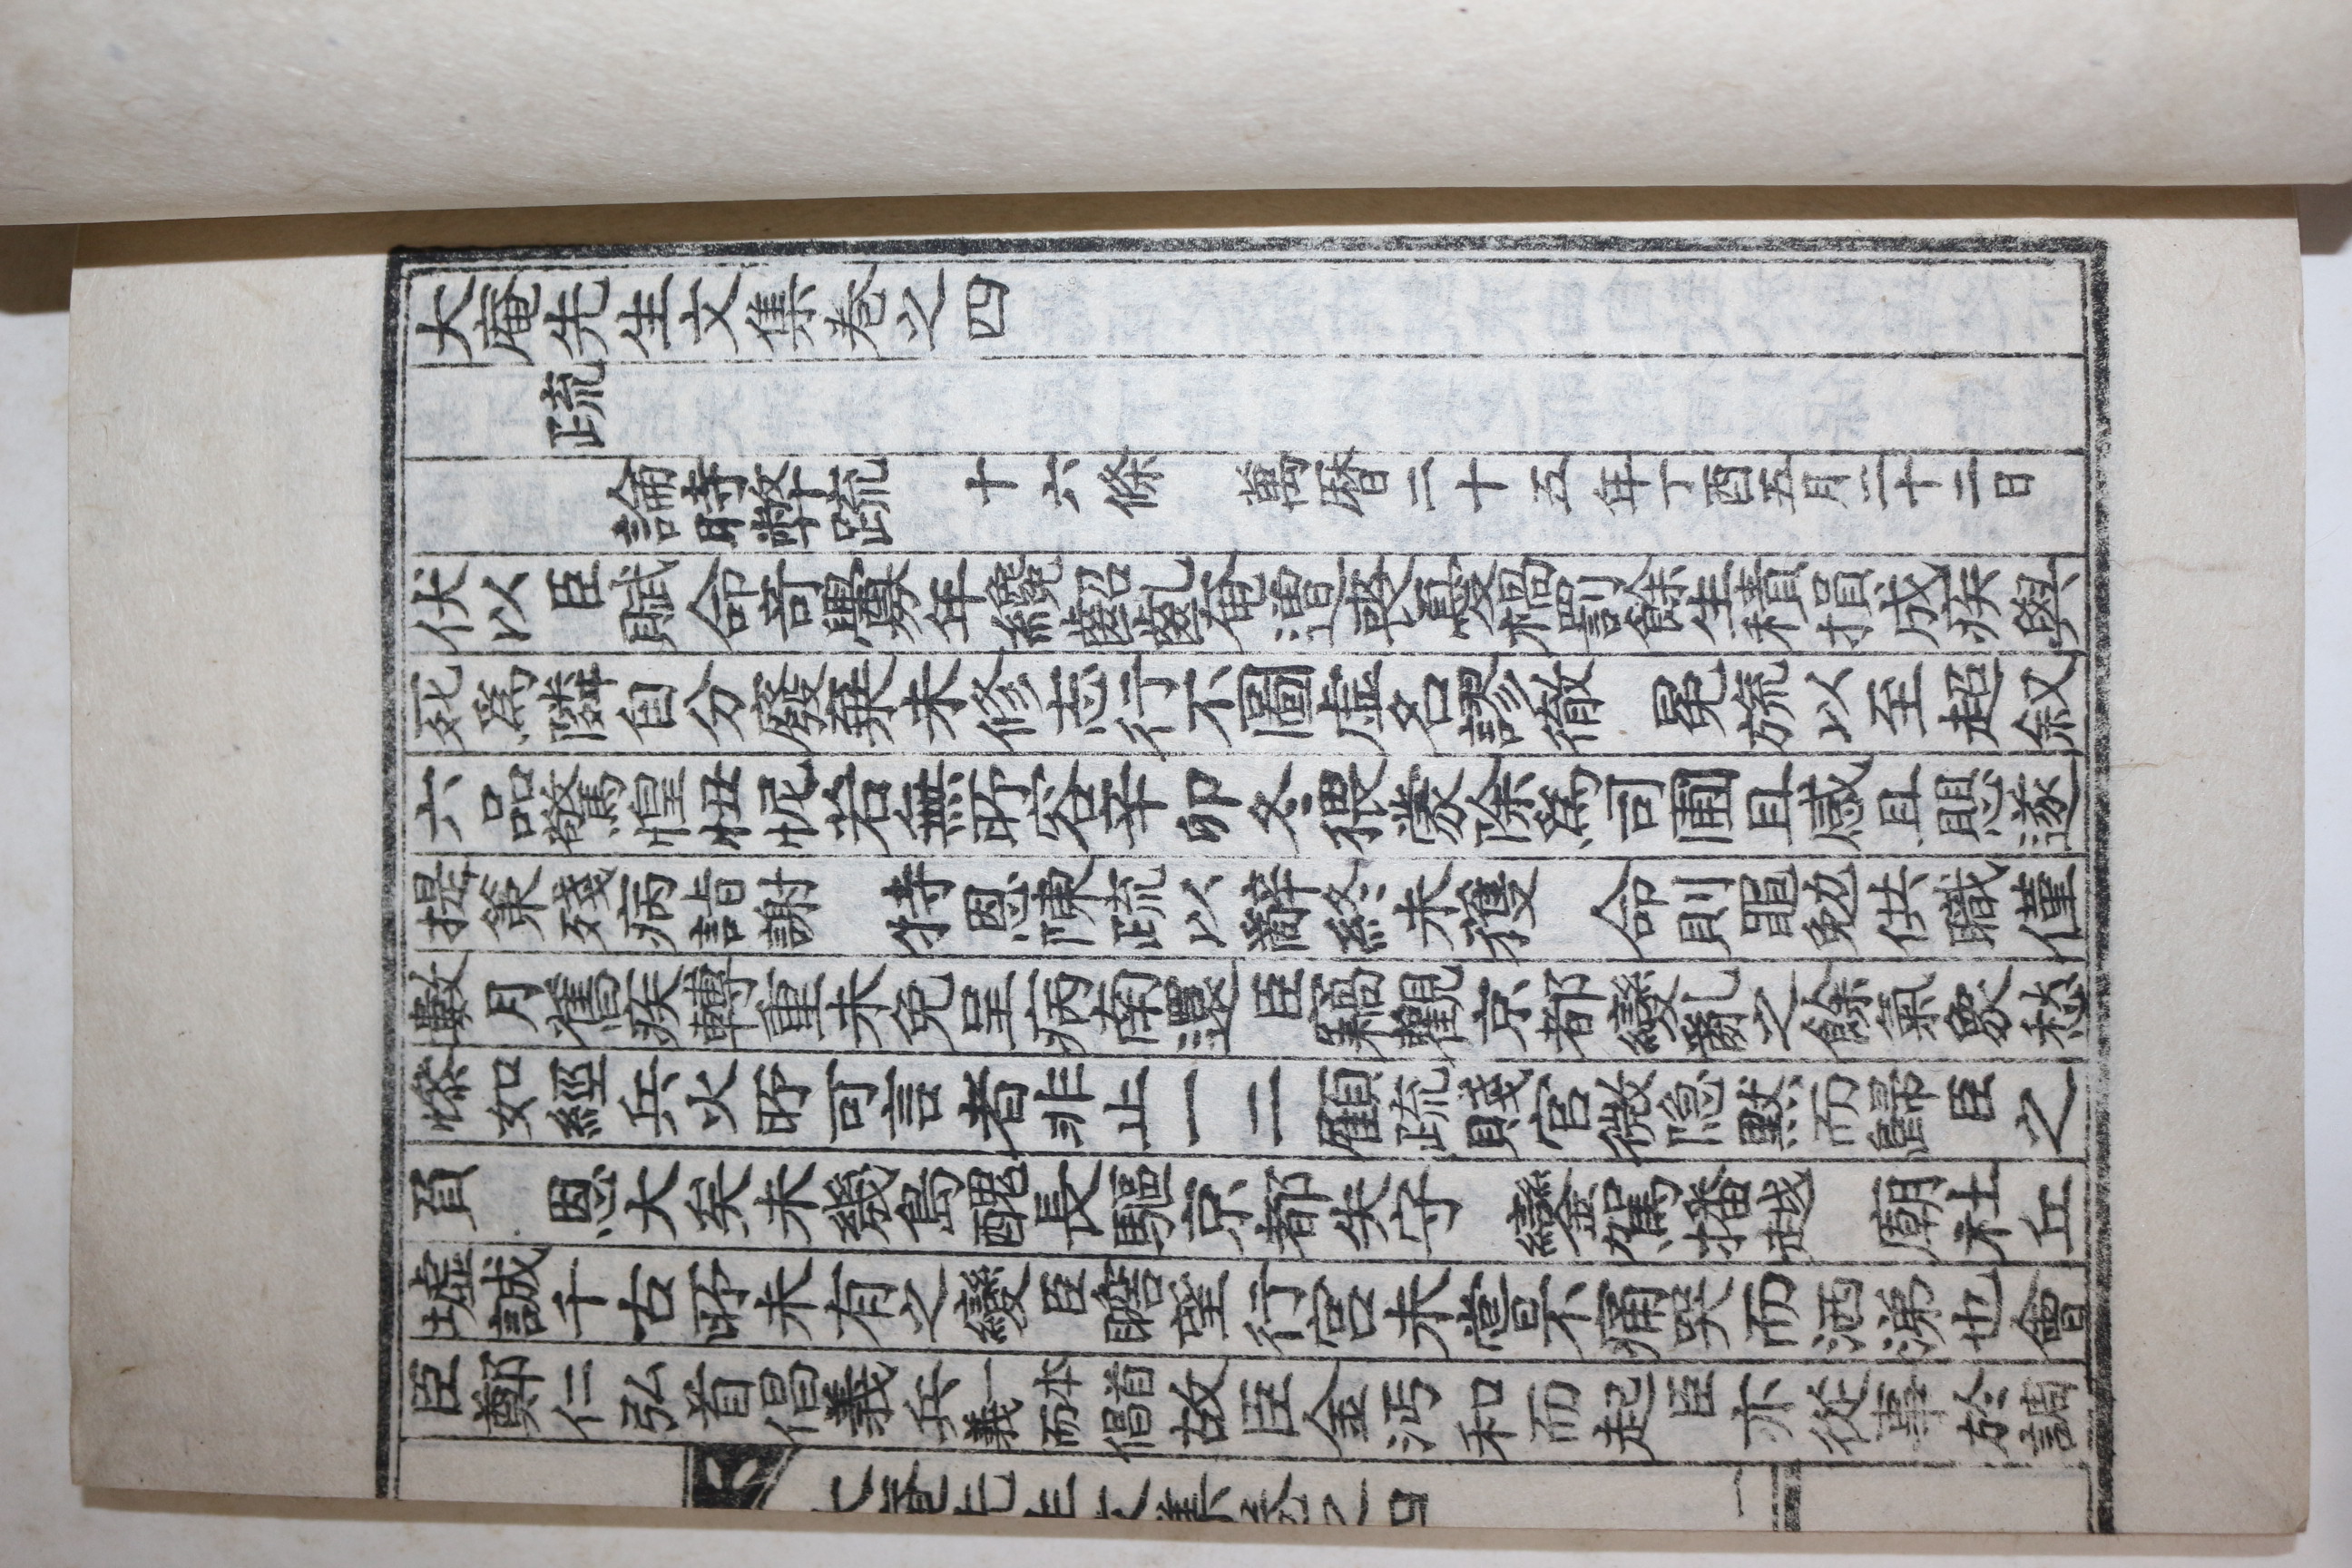 大庵先生文集卷之四
疏
論時弊疏 十六條 萬曆二十五年丁酉五月二十二日
伏以臣賦命奇釁年纔齠齔奄遭憂禍罸餘生積損成疾與
死爲隣自分廢棄未修志行不圖虛名謬徹 冕旒以至超叙
六品驚惶忸怩若無所容辛卯冬猥蒙除爲司圃且感且恧遂
策殘病詣謝 特恩陳疏以辭終未獲 命則黽勉供職僅
數月舊疾轉重未免呈病南還臣竊觀京都變亂之餘氣象愁
慘如經兵火所可言者非止一二顧疏賤官微隱默而歸臣之
負 恩大矣未幾島醜長驅京都失守 鑾駕播越 廟社丘
墟誠千古所未有之變臣瞻望行宮未嘗不痛哭而洒涕也會
臣鄭仁弘首倡義兵一本昔義而倡故臣金沔和而起臣亦從事於請
大庵先生文集卷之四 一